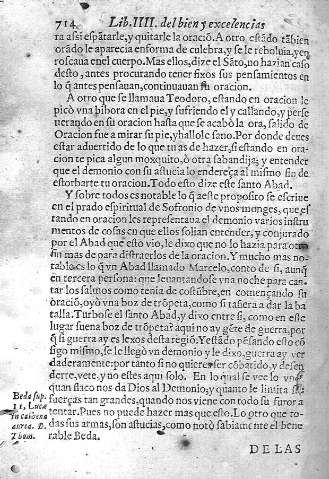 714 Lib. IIII. del bien y excelencias
ra assi espãtarle, y quitarle la oraciõ. A otro estãdo tãbien
orãdo le aparecia en forma de culebra, y se le reboluia, y en
roscaua en el cuerpo. Mas ellos, dize el Sãto, no hazian caso
desto, antes procurando tener fixos sus pensamientos en
lo q̃ antes pensauan, continuauan su oracion.
A otro que se llamaua Teodoro, estando en oracion le
picò vna biuora en el pie, y sufriendo el y callando, y perse
uerando en su oracion hasta que se acabò la ora, salido de
Oracion fue a mirar su pie, y hallole sano. Por donde deues
estar aduertido de lo que tu as de hazer, si estando en ora-
cion te pica algun mosquito, ò otra sabandija; y entender
que el demonio con su astucia lo endereça al mismo fin de
estorbarte tu oracion. Todo esto dize este santo Abad.
Y sobre todos es notable lo q̃ a este proposito se escriue
en el prado espiritual de Sofronio de vnos monges, que es
tando en oracion les representaua el demonio varios instru
mentos de cosas en que ellos solian entender, y conjurado
por el Abad que esto vio, le dixo que no lo hazia para otro
fin mas de para distraerlos de la oracion. Y mucho mas no-
table es lo q̃ vn Abad llamado Marcelo, conto de si, aunq̃
en tercera persona: que leuantandose vna noche para can-
tar los salmos como tenia de costũbre, en començando su
oraciõ, oyò vna boz de trõpeta, como si tañera a dar la ba
talla. Turbose el santo Abad, y dixo entre si, como en este
lugar suena boz de trõpeta? aqui no ay gẽte de guerra, por
q̃ si guerra ay es lexos desta regiõ. Y estãdo pẽsando esto cõ
sigo mismo, se le llegò vn demonio y le dixo, guerra ay ver
daderamente: por tanto si no quieres ser cõbatido, y defen
derte, vete, y no estes aqui solo. En lo qual se vee lo vno
quan flaco nos da Dios al Demonio, y quanto le limita sus
fuerças tan grandes, quando nos viene con todo su furor a
tentar. Pues no puede hazer mas que esto. Lo otro que to-
das sus armas, son astucias, como notò sabiamẽte el bene
rable Beda.
Beda sup.
11. Lucæ
in catena
aurea. D.
Thom.
DE LAS